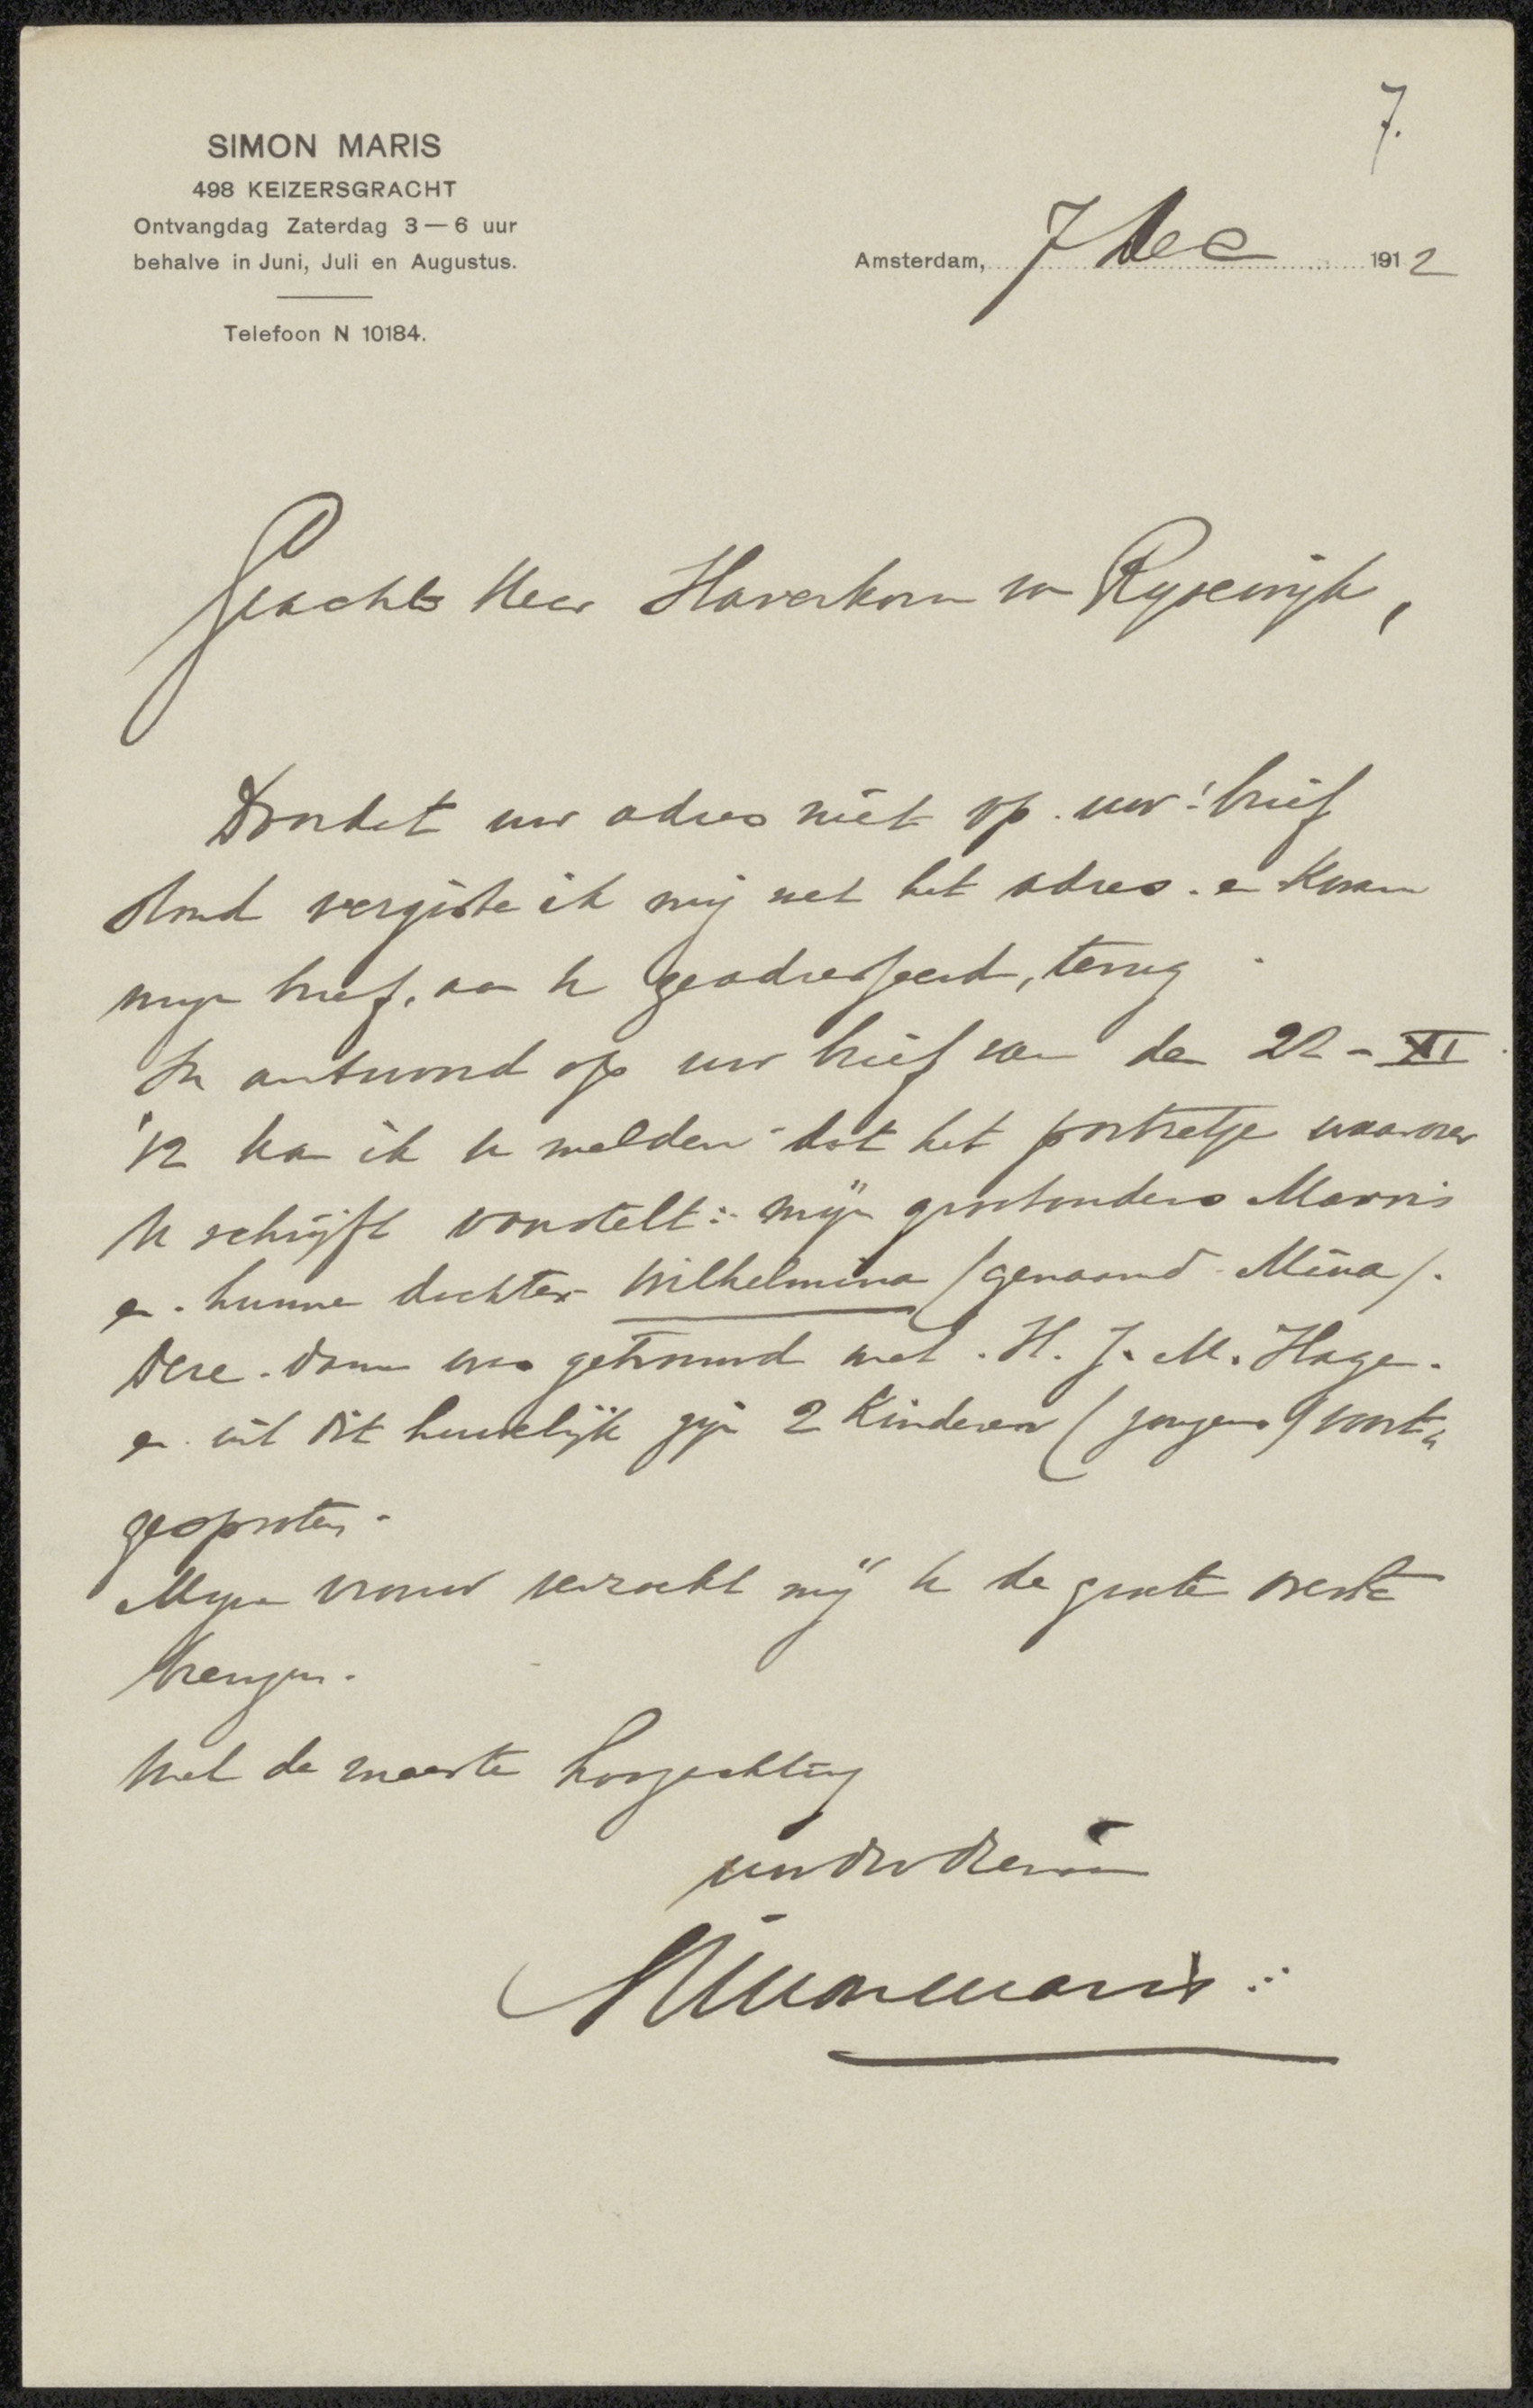 7.
SIMON MARIS
498 KEIZERSGRACHT
Ontvangdag Zaterdag 3—6 uur
behalve in Juni, Juli en Augustus.
Telefoon N 10184.
Amsterdam, 7 Dec 1912
Geachte Heer Haverkorn van Rysewijk,
Doordat uw adres niet op uw brief
stond vergiste ik mij met het adres. en kwam
mijn brief, aan U geadresseerd, terug.
In antwoord op uw brief van den 22 - XI
'12 kan ik U melden dat het portretje waarover
U schrijft voorstelt: mijn grootouders Marris
en hunne dochter Wilhelmina (genaamd Mina).
Deze dame was getrouwd met H. J. M. Hage.
en uit dit huwelijk zijn 2 Kinderen (jongens) voort„
gesproten.
Mijn vrouw verzoekt mij U de groete over te
brengen.
Met de meeste hoogachting
uw dw dienaar
Simon Maris